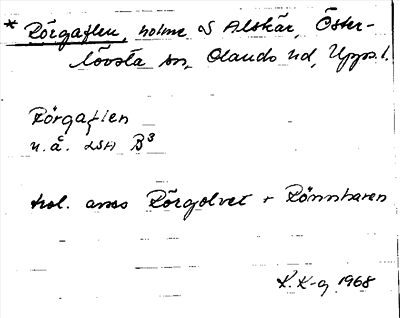 * Rörgaflen, holme S Alskär, Öster-
lövsta sn, Olands hd, Upps. l.
Rörgaflen
n.å. LSA B³
hol. anss Rörgolvet + Rönnharen
K. K-g 1968